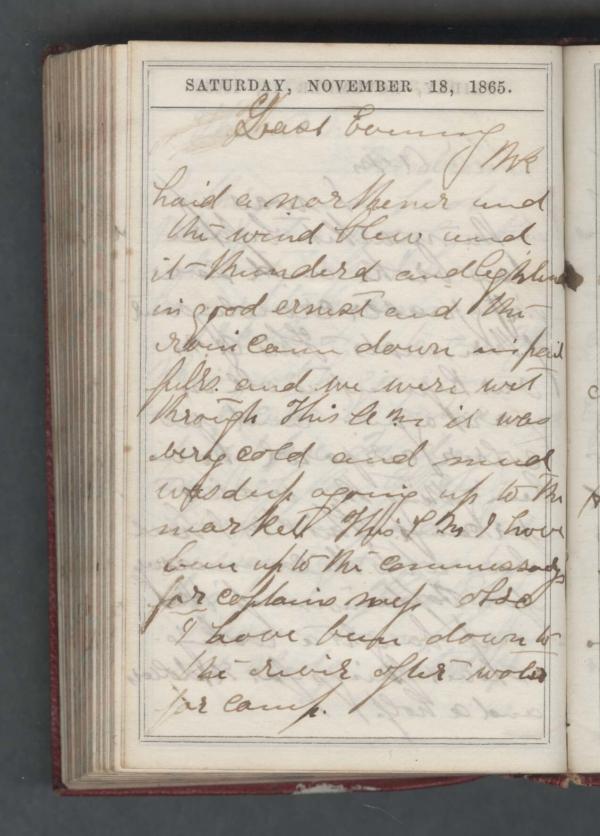 SATURDAY, NOVEMBER 18, 1865.
Last Evening We
haid a northener and
the wind blew and
it thunderd and lightend
in good ernest and the
rain came down in pail
fulls. and we were wet
through This A M it was
very cold and mud
was deep agoing up to the
market This P M I have
been up to the commissarys
for captains mess also
I have been down to
the river after water
for camp.